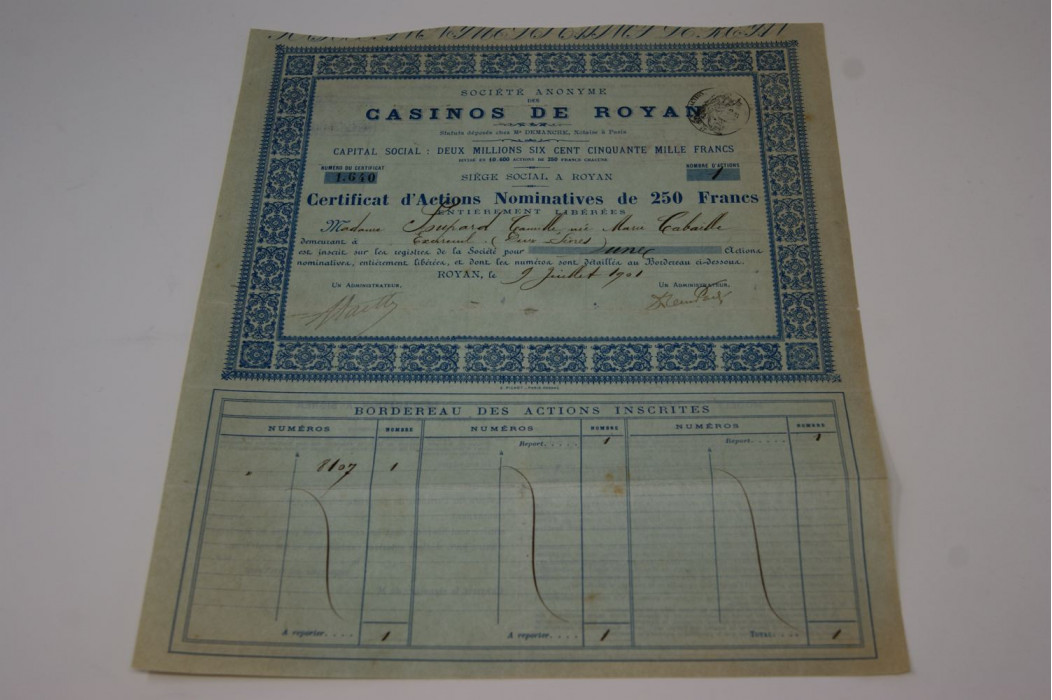 SOCIÉTÉ ANONYME
DES
CASINOS DE ROYAN
Statuts déposés chez Me DEMANCHE, Notaire à Paris
CAPITAL SOCIAL : DEUX MILLIONS SIX CENT CINQUANTE MILLE FRANCS
DIVISÉ EN 10.600 ACTIONS DE 250 FRANCS CHACUNE
NUMÉRO DU CERTIFICAT
1.640
NOMBRE D'ACTIONS
1
SIÈGE SOCIAL A ROYAN
Certificat d'Actions Nominatives de 250 Francs
ENTIÈREMENT LIBÉRÉES
Madame Camille, née Marie
demeurant à (Deux Sèvres)
est inscrit sur les registres de la Société pour une Actions
nominatives, entièrement libérées, et dont les numéros sont détaillés au Bordereau ci-dessous.
ROYAN, le 9 Juillet 1901
UN ADMINISTRATEUR,
UN ADMINISTRATEUR,
BORDEREAU DES ACTIONS INSCRITES
NUMÉROS NOMBRE NUMÉROS NOMBRE NUMÉROS NOMBRE
Report. . . . . 1 Report. . . . . 1
1
A reporter. . . . 1 A reporter. . . . 1 TOTAL. . . . 1